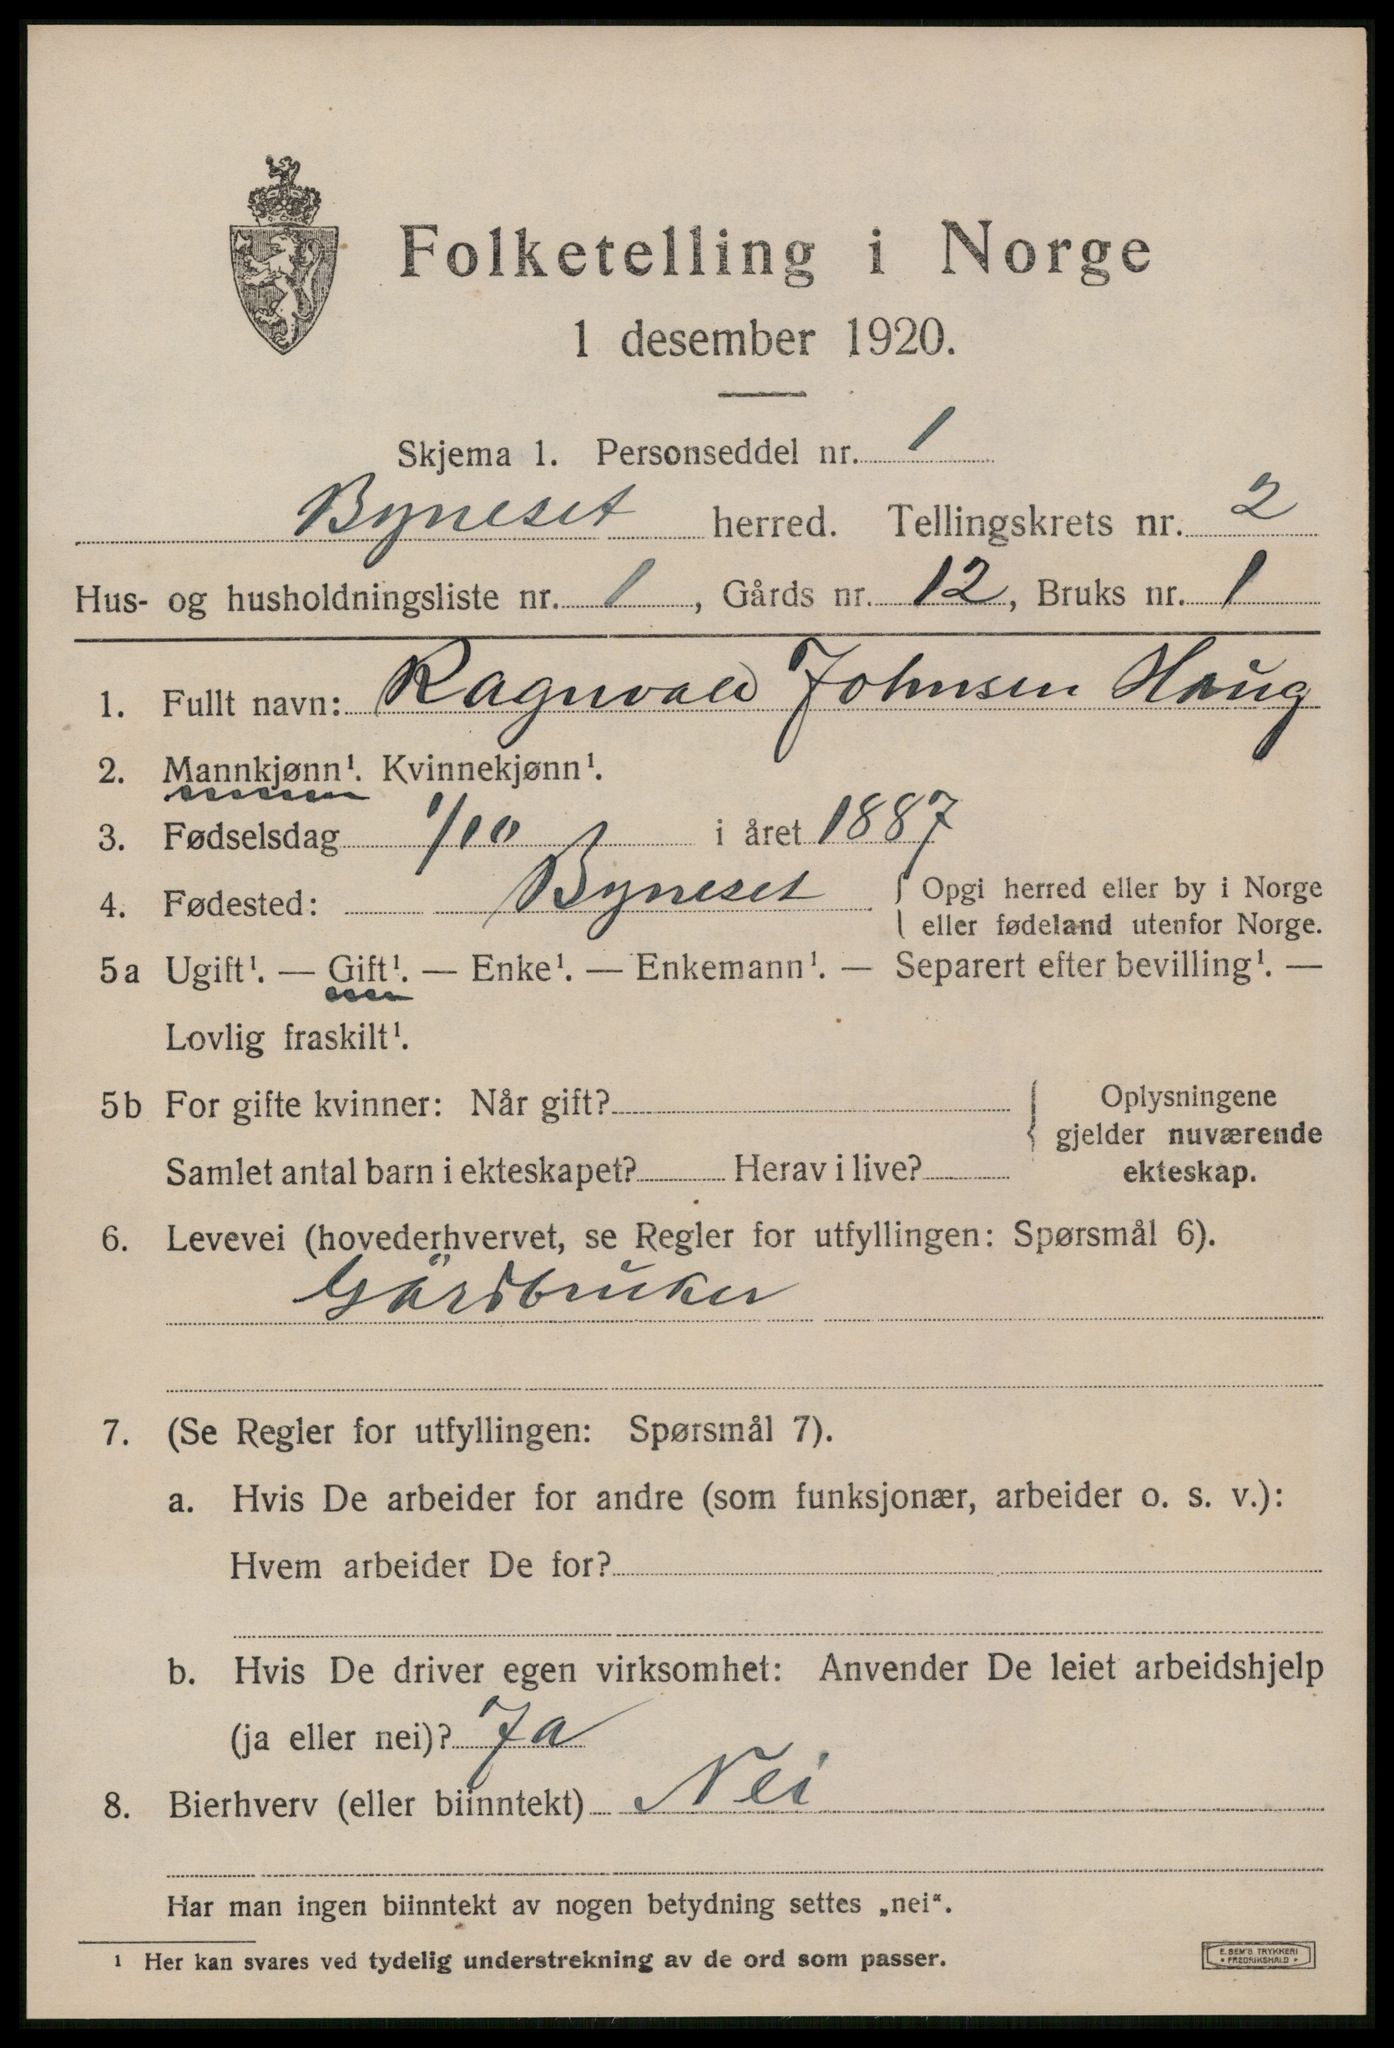 Folketelling i Norge
1 desember 1920.
Skjema 1. Personseddel nr. 1
Byneset herred. Tellingskrets nr. 2
Hus- og husholdningsliste nr. 1, Gårds nr. 12, Bruks nr. 1
1. Fullt navn: Ragnvald Johnsen Haug
2. Mannkjønn¹. Kvinnekjønn¹.
3. Fødselsdag 1/10 i året 1887
4. Fødested: Byneset { Opgi herred eller by i Norge
eller fødeland utenfor Norge.
5a Ugift¹. — Gift¹. — Enke¹. — Enkemann¹. — Separert efter bevilling¹. —
Lovlig fraskilt¹.
5b For gifte kvinner: Når gift? { Oplysningene
gjelder nuværende
Samlet antal barn i ekteskapet? Herav i live? ekteskap.
6. Levevei (hovederhvervet, se Regler for utfyllingen: Spørsmål 6).
Gårdbruker
7. (Se Regler for utfyllingen: Spørsmål 7).
a. Hvis De arbeider for andre (som funksjonær, arbeider o. s. v.):
Hvem arbeider De for?
b. Hvis De driver egen virksomhet: Anvender De leiet arbeidshjelp
(ja eller nei)? Ja
8. Bierhverv (eller biinntekt) Nei
Har man ingen biinntekt av nogen betydning settes „nei“.
¹ Her kan svares ved tydelig understrekning av de ord som passer.
E. SEM'S TRYKKERI
• FREDRIKSHALD •